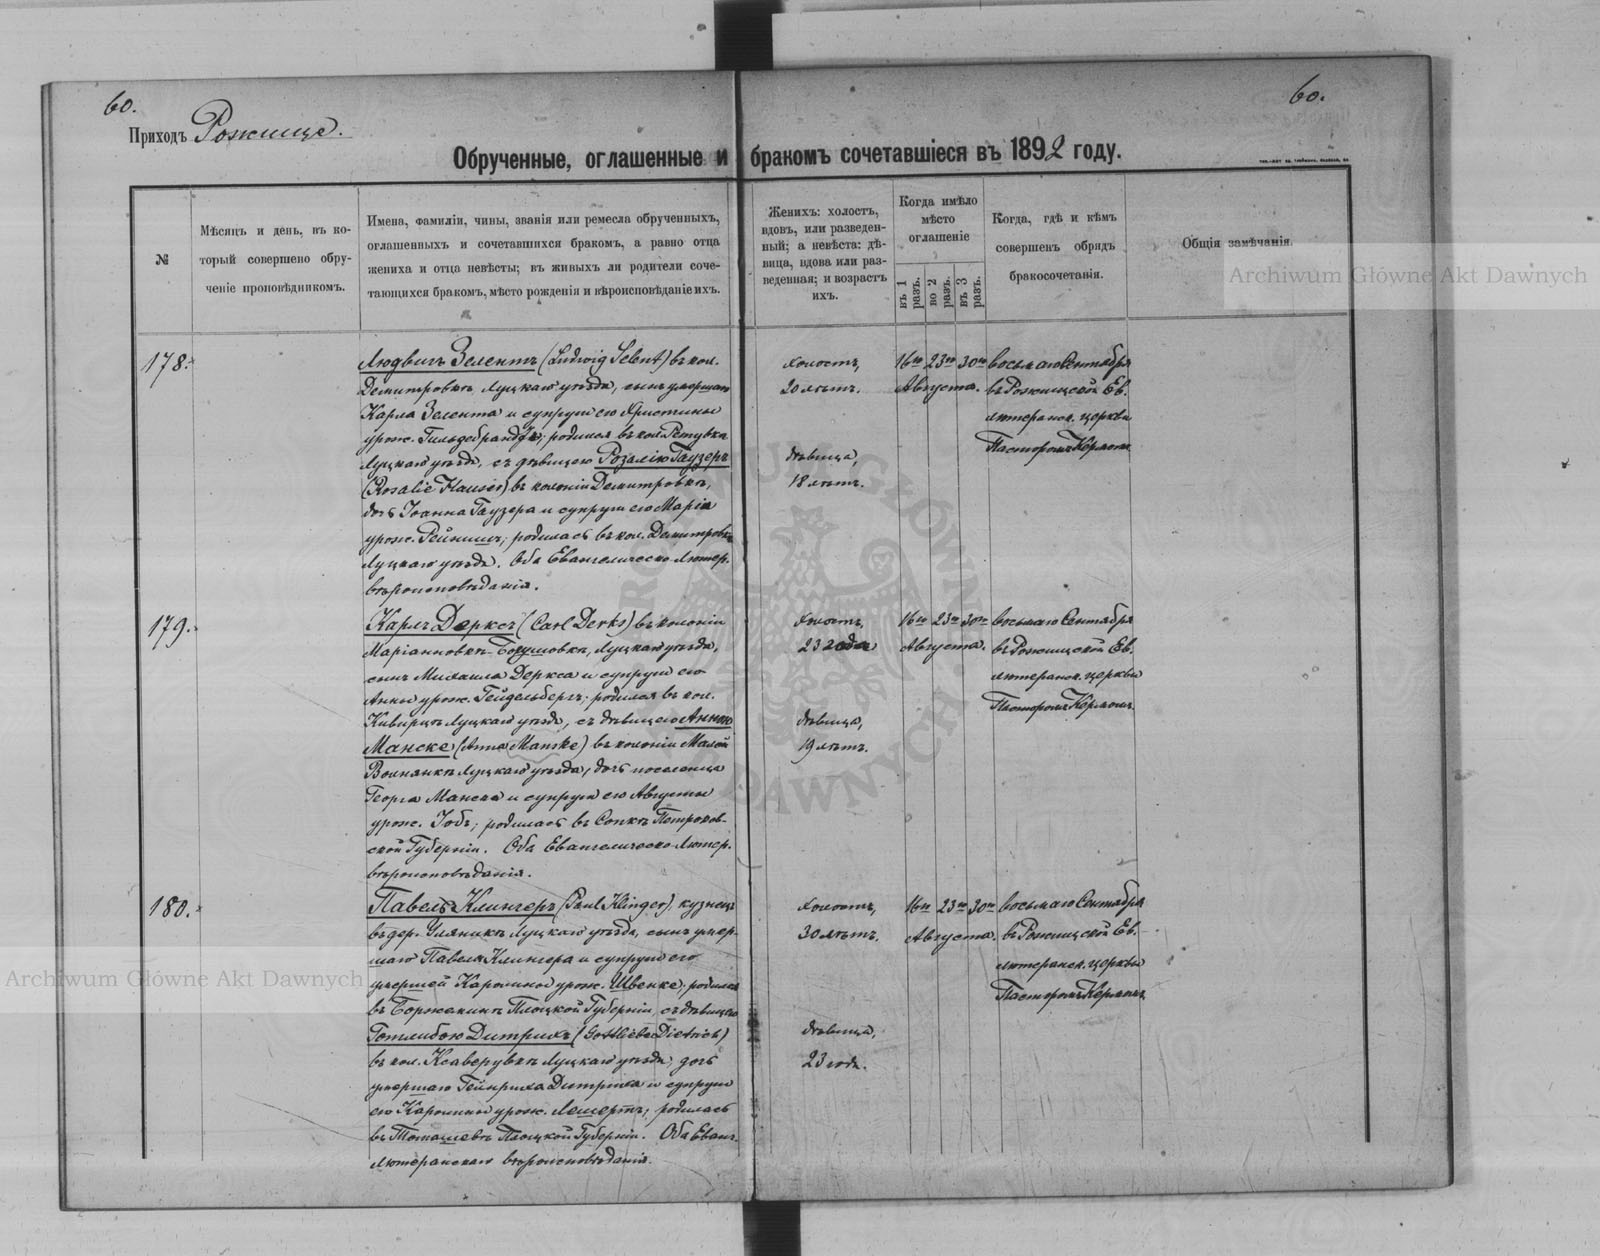 60.
60.
Приходъ Рожище.
Обрученные, оглашенные и бракомъ сочетавшіеся въ 1892 году.
№
Мѣсяцъ и день, въ ко-
торый совершено обру-
ченіе проповѣдникомъ.
Имена, фамиліи, чины, званія или ремесла обрученныхъ,
оглашенныхъ и сочетавшихся бракомъ, а равно отца
жениха и отца невѣсты; въ живыхъ ли родители соче-
тающихся бракомъ, мѣсто рожденія и вѣроисповѣданіе ихъ.
Женихъ: холостъ,
вдовъ, или разведен-
ный; а невѣста: дѣ-
вица, вдова или раз-
веденная; и возрастъ
ихъ.
Когда имѣло
мѣсто
оглашеніе
въ 1 разъ.
во 2 разъ.
въ 3 разъ.
Когда, гдѣ и кѣмъ
совершенъ обрядъ
бракосочетанія.
Общія замѣчанія.
178.
Людвигъ Зелентъ (Ludwig Selent) въ кол.
Демитровкѣ Луцкаго уѣзда, сынъ умершаго
Карла Зелента и супруги его Христины
урож. Гильдебрандтъ; родился въ кол.
Луцкаго уѣзда, съ дѣвицею Розалію Гаузеръ
(Rosalie Hauser) въ колоніи Демитровкѣ,
дочь Іоанна Гаузера и супруги его Маріи
урож. родилась въ кол. Демитровкѣ
Луцкаго уѣзда. Оба Евангелическо-Лютер.
вѣроисповѣданія.
холостъ,
20 лѣтъ.
дѣвица,
18 лѣтъ.
16го 23го 30го
Августа.
восьмаго Сентября
въ Рожищской Ев.
лютеранск. церкви
Пасторомъ Кермъ
179.
Карлъ Дерксъ (Carl Derks) въ колоніи
Маріановкѣ Луцкаго уѣзда,
сынъ Михаила Деркса и супруги его
Анны урож. Гейдельбергъ; родился въ кол.
Луцкаго уѣзда, съ дѣвицею Анною
Манске (Anna Manske) въ колоніи Малой
Волнянкѣ Луцкаго уѣзда, дочь поселенца
Георга Манске и супруги его Августы
урож. Іобъ; родилась въ Петроков-
ской Губерніи. Оба Евангелическо-Лютер.
вѣроисповѣданія.
холостъ,
23 года
дѣвица,
19 лѣтъ.
16го 23го 30го
Августа.
восьмаго Сентября
въ Рожищской Ев.
лютеранск. церкви
Пасторомъ Кермъ
180.
Павелъ Клингеръ (Paul Klinger), кузнецъ
въ дер. Уляникѣ Луцкаго уѣзда, сынъ умер-
шаго Павла Клингера и супруги его
умершей Каролины урож. Швенке; родился
въ Плоцкой Губерніи, съ дѣвицею
Готлибою Дитрихъ (Gottliebe Dietrich)
въ кол. Ксаверувкѣ Луцкаго уѣзда, дочь
умершаго Гейнриха Дитриха и супруги
его Каролины урож. Лешертъ; родилась
въ Томашевѣ Плоцкой Губерніи. Оба Еванг.
Лютеранскаго вѣроисповѣданія.
холостъ,
30 лѣтъ.
дѣвица,
23 года.
16го 23го 30го
Августа.
восьмаго Сентября
въ Рожищской Ев.
лютеранск. церкви
Пасторомъ Кермъ
Archiwum Główne Akt Dawnych
Archiwum Główne Akt Dawnych
ARCHIWUM GŁÓWNE AKT DAWNYCH